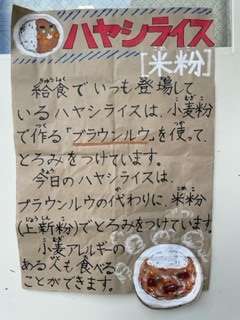 ハヤシライス
[米粉]
給食でいつも登場して
いるハヤシライスは、小麦粉
で作る「ブラウンルウ」を使って、
とろみをつけています。
今日のハヤシライスは、
ブラウンルウの代わりに、米粉
(上新粉)でとろみをつけています。
小麦アレルギーの
ある人も食べる
ことができます。